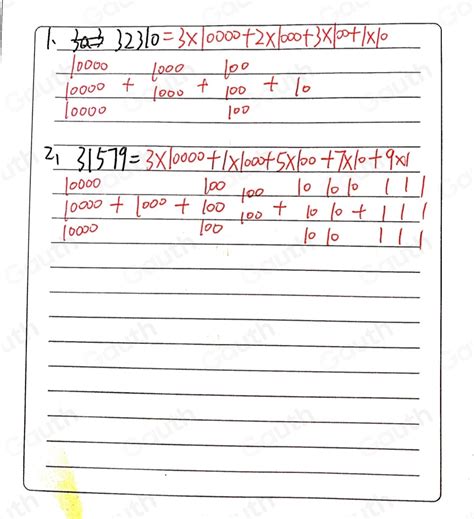 1. 32310=3×10000+2×1000+3×100+1×10
10000 1000 100
10000 + 1000 + 100 + 10
10000 100
2, 31579=3×10000+1×1000+5×100+7×10+9×1
10000 100 100 10 10 10 1 1 1
10000 + 1000 + 100 100 + 10 10 + 1 1 1
10000 100 10 10 1 1 1
Gauth